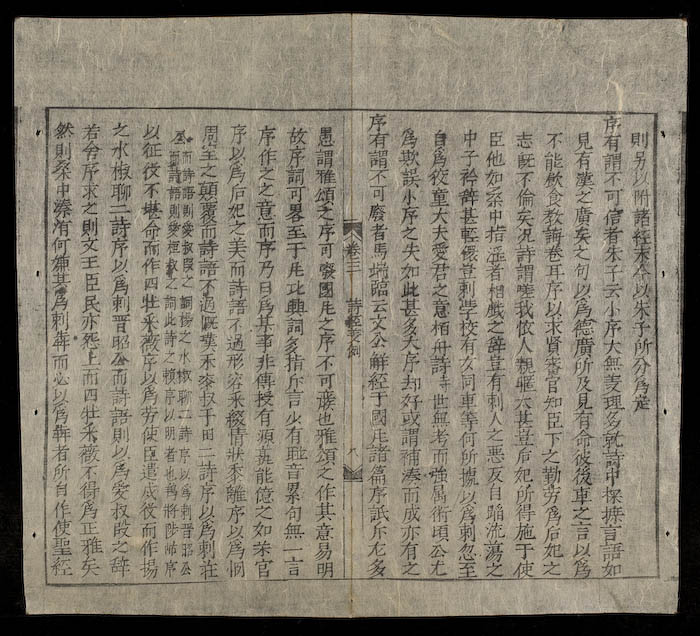 則另以附諸經末今以朱子所分為定
序有謂不可信者朱子云小序大無義理多就詩中採摭言語如
見有漢之廣矣之句以為德廣所及見有命彼後車之言以為
不能飲食教誨卷耳序以求賢審官知臣下之勤勞為后妃之
志既不倫矣况詩謂嗟我懷人親暱太甚豈后妃所得施于使
臣他如桑中指淫者相戲之辭豈有刺人之惡反自陷流蕩之
中子衿辭甚輕儇豈刺學校有女同車等何所據以為刺忽至
目為狡童大失愛君之意栢舟詩世無考而強屬衛頃公尤
為欺誤小序之失如此甚多大序却好或謂補湊而成亦有之
序有謂不可廢者馬端臨云文公解經于國風諸篇序詆斥尤多
卷三 詩經變例 八
愚謂雅頌之序可廢國風之序不可廢也雅頌之作其意易明
故序詞可畧至于風比興詞多指斥言少有聯音累句無一言
序作之之意而序乃曰為某事非傳授有源孰能億之如芣苢
序以為后妃之美而詩語不過形容采綴情狀黍離序以為憫
周室之顛覆而詩語不過慨嘆禾黍叔于田二詩序以為刺莊
公而詩語則愛叔段之詞揚之水椒聊二詩序以為刺晉昭公
而詩語則愛桓叔之詞此詩之賴序以明者也鴇羽陟岵序
以征役不堪命而作四牡采薇序以為勞使臣遣戍役而作揚
之水椒聊二詩序以為刺晉昭公而詩語則以為愛叔段之辭
若舍序求之則文王臣民亦怨上而四牡采薇不得為正雅矣
然則桑中溱洧何嫌其為刺犇而必以為犇者所自作使聖經